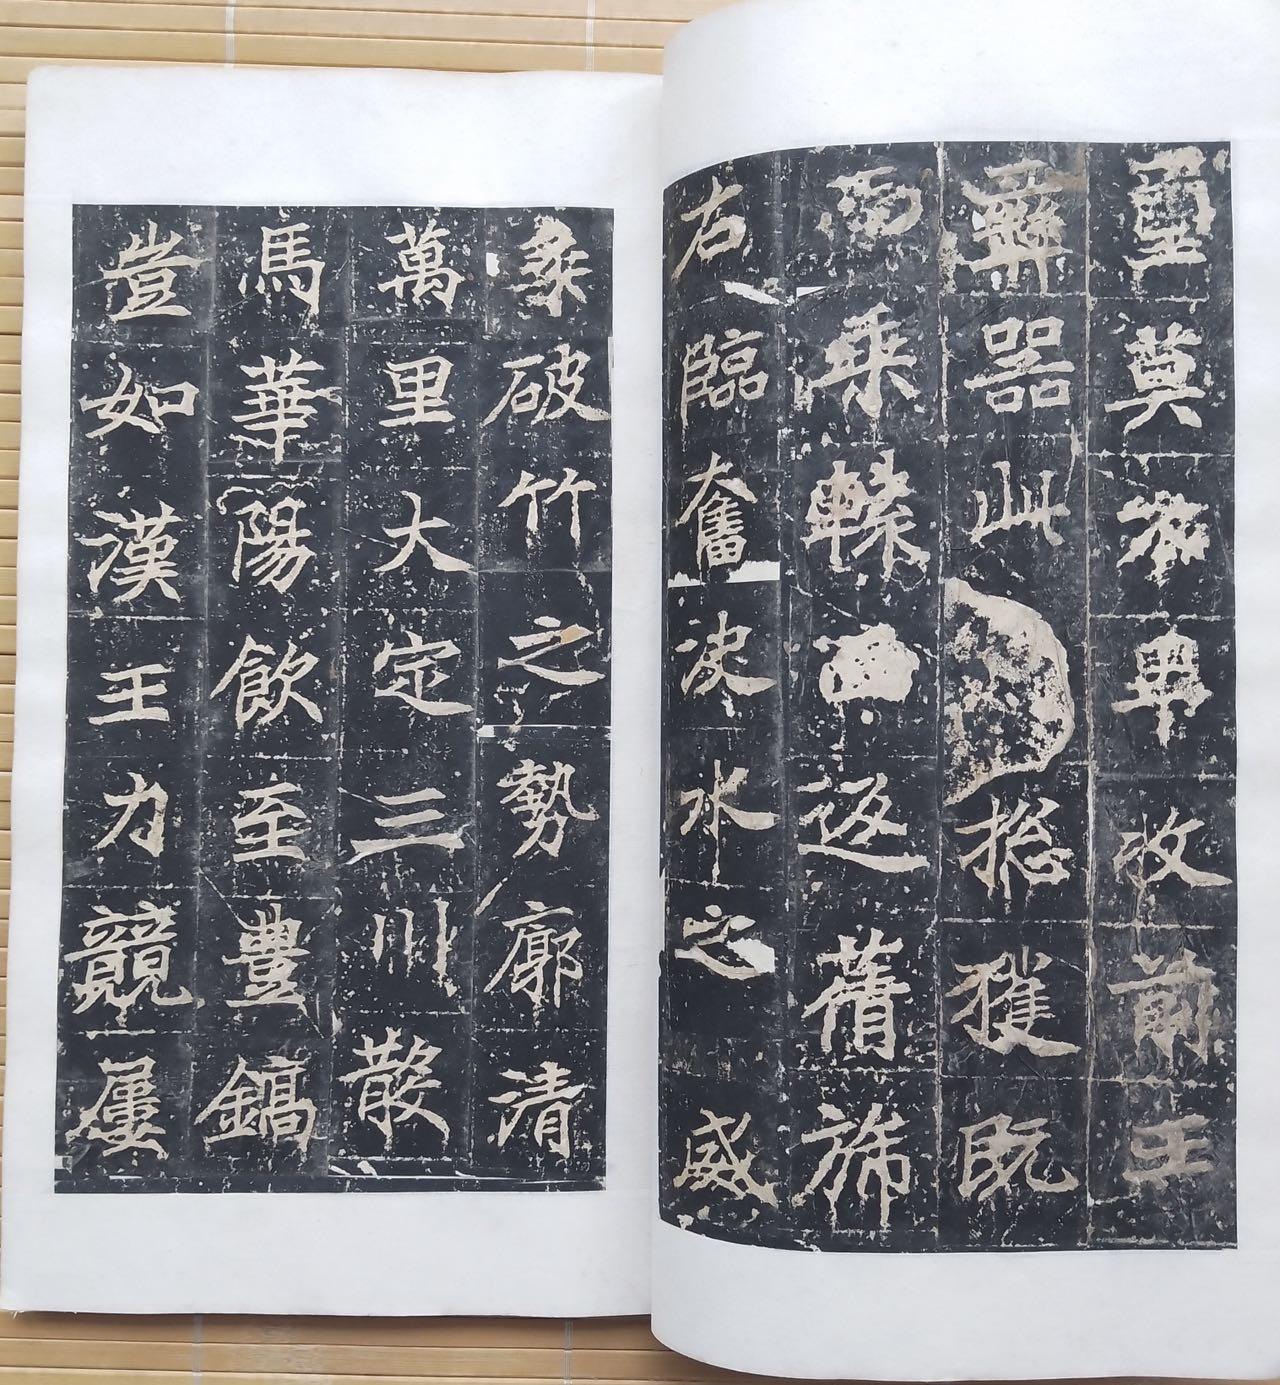 重莫不畢收前王
彝器此捴獲既
而乘轅西返蒨旆
右臨奮決水之威
乘破竹之勢廓清
萬里大定三川散
馬華陽飲至豐鎬
豈如漢王力競屢